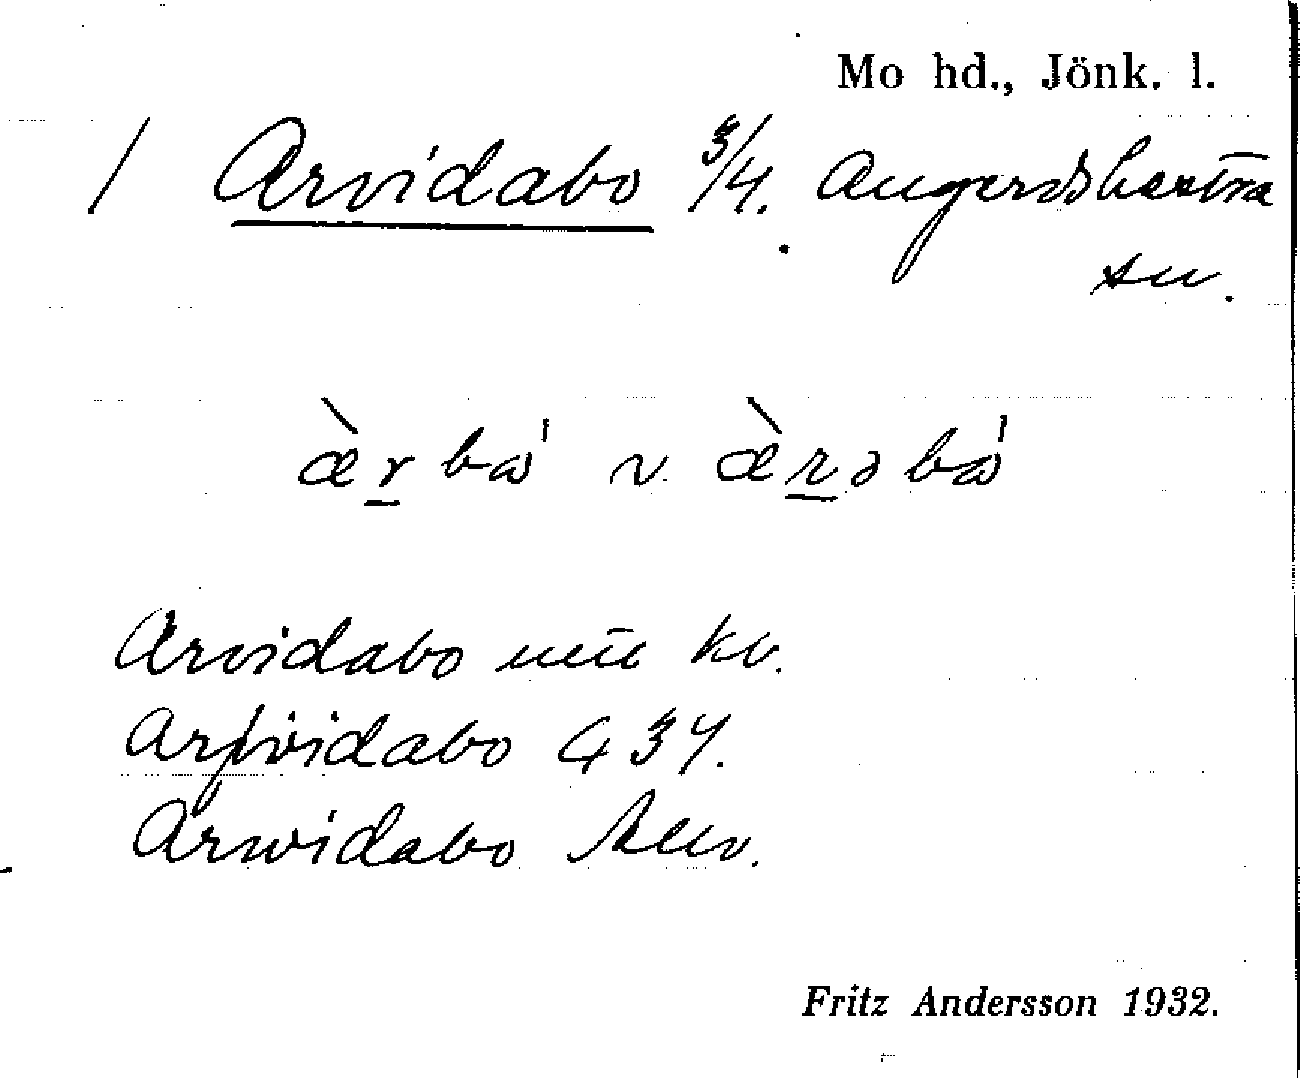 Mo hd., Jönk. l.
/ Arvidabo 3/4. Angerdshestra
sn.
æ̀r̲bω' ~ æ̀r̲əbω'
Arvidabo
Arfvidabo G 34.
Arwidabo
Fritz Andersson 1932.